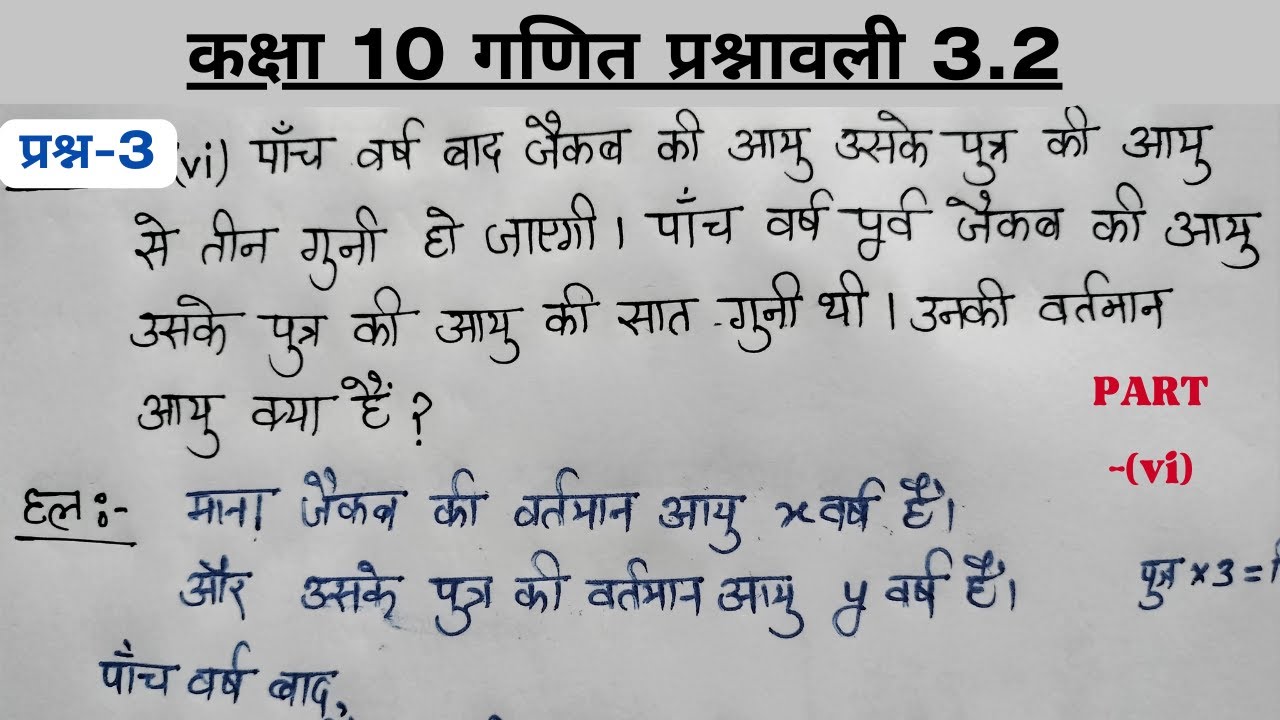 कक्षा 10 गणित प्रश्नावली 3.2
प्रश्न-3 (vi) पाँच वर्ष बाद जैकब की आयु उसके पुत्र की आयु
से तीन गुनी हो जाएगी। पाँच वर्ष पूर्व जैकब की आयु
उसके पुत्र की आयु की सात गुनी थी। उनकी वर्तमान
आयु क्या हैं?
PART
-(vi)
हलः- माना जैकब की वर्तमान आयु x वर्ष है।
और उसके पुत्र की वर्तमान आयु y वर्ष है।
पुत्र × 3 =
पाँच वर्ष बाद,